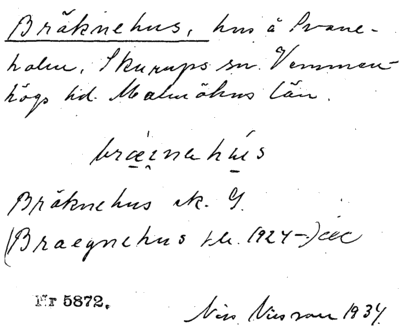 Bräknehus, hus å Svane-
holm, Skurups sn. Vemmen-
högs hd. Malmöhus län.
bræ̀i̯nehús
Bräknehus ek. G.
(Braegnehus 1924-)
Nr 5872.
Nils Nilsson 1934.